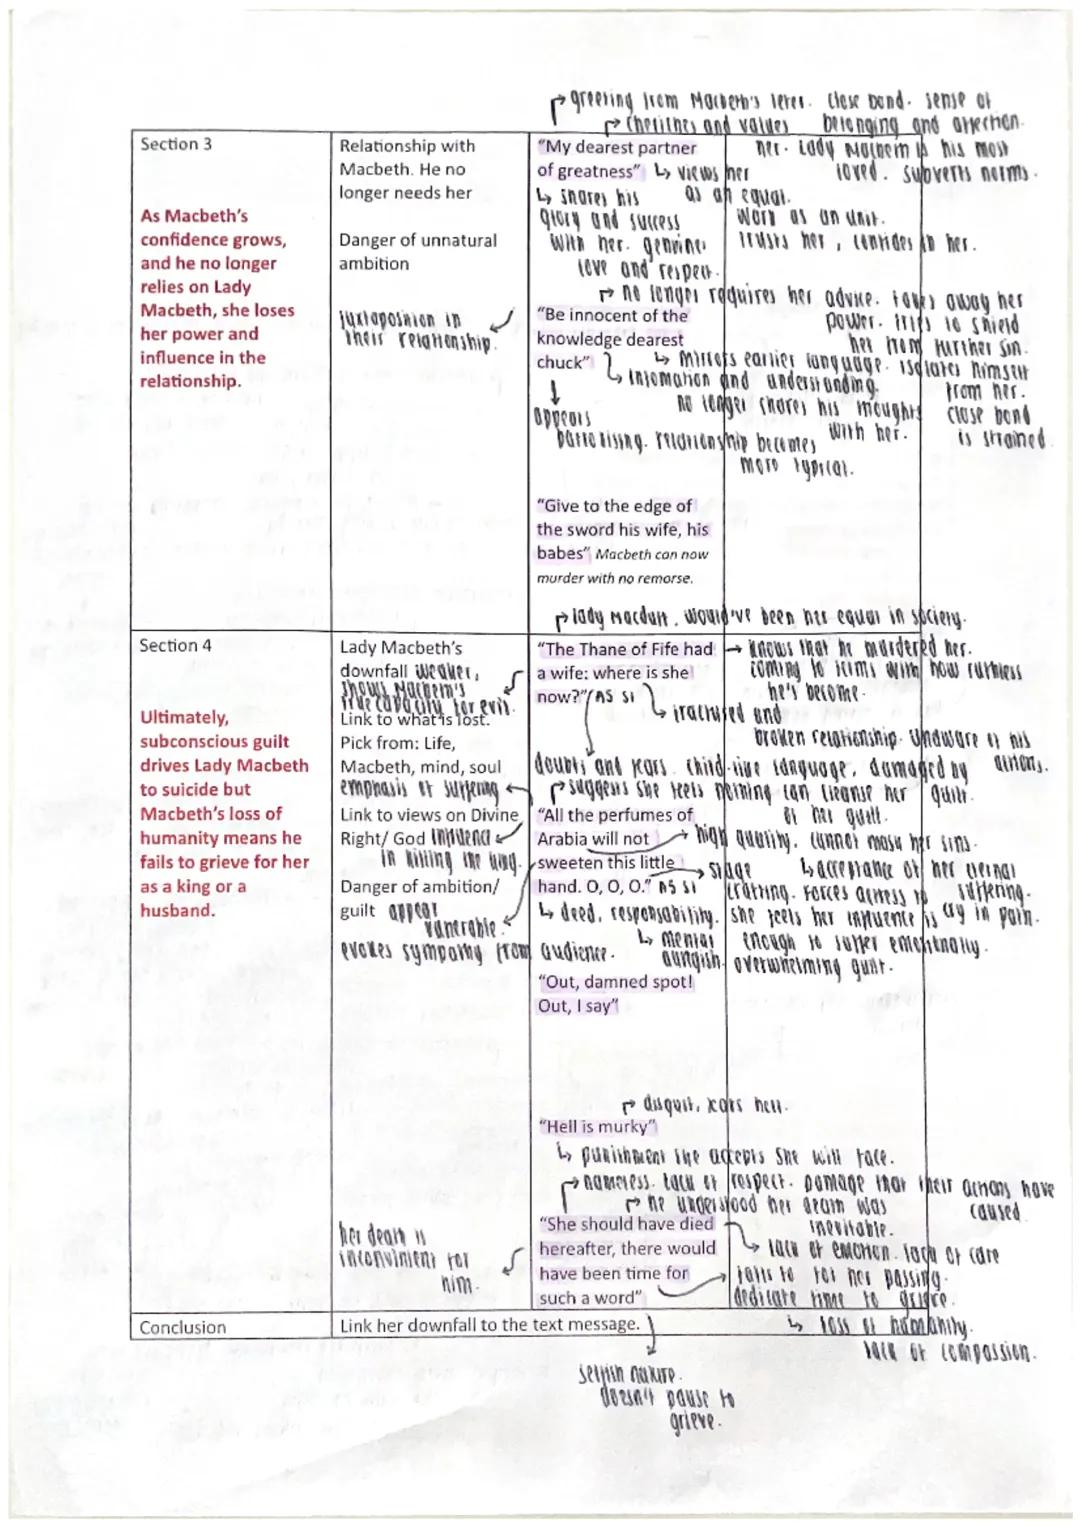 greeting from Macbeth's letter. Close bond. sense of
cherishes and values belonging and affection.
Section 3
Relationship with
Macbeth. He no
longer needs her
"My dearest partner
of greatness" ↳ views her
her. Lady Macbeth is his most
loved. subverts norms.
as an equal.
↳ shares his
glory and success
with her. genuine
love and respect.
Work as an unit.
Trusts her, confides in her.
As Macbeth's
confidence grows,
and he no longer
relies on Lady
Macbeth, she loses
her power and
influence in the
relationship.
Danger of unnatural
ambition
juxtaposition in
their relationship.
no longer requires her advice. takes away her
power. tries to shield
her from further sin.
"Be innocent of the
knowledge dearest
chuck"
↳ mirrors earlier language. isolates himself
from her.
↳ infomation and understanding.
no longer shares his thoughts
with her.
close bond
is strained
appears
patronising. relationship becomes
more typical.
"Give to the edge of
the sword his wife, his
babes" Macbeth can now
murder with no remorse.
lady Macduff. would've been her equal in society.
Section 4
Lady Macbeth's
downfall weaker,
shows Macbeth's
true capacity for evil.
Link to what is lost.
Pick from: Life,
Macbeth, mind, soul
emphasis of suffering
Link to views on Divine
Right/ God influence
in killing the king.
Danger of ambition/
guilt appear
vunerable.
evokes sympathy from audience.
Ultimately,
subconscious guilt
drives Lady Macbeth
to suicide but
Macbeth's loss of
humanity means he
fails to grieve for her
as a king or a
husband.
"The Thane of Fife had
a wife: where is she
now?" A5 S1
→ knows that he murdered her.
coming to terms with how ruthless
he's become.
↳ fractured and
broken relationship. Unaware of his
actions.
doubts and fears. child-like language, damaged by
guilt.
suggests she feels nothing can cleanse her
of her guilt.
"All the perfumes of
Arabia will not
sweeten this little
hand. O, O, O." A5 S1
high quality. cannot mask her sins.
↳ acceptance of her eternal
suffering.
stage
crafting. Forces actress to
cry in pain.
↳ deed, responsability. she feels her influence is
enough to suffer emotionally.
↳ mental
anguish. overwhelming guilt.
"Out, damned spot!
Out, I say"
disgust, fears hell.
"Hell is murky"
↳ punishment she accepts she will face.
nameless. lack of respect. Damage that their actions have
caused
he understood her death was
inevitable.
"She should have died
hereafter, there would
have been time for
such a word"
↳ lack of emotion. lack of care
for her passing.
fails to
dedicate time to grieve.
↳ loss of humanity.
lack of compassion.
her death is
inconvinient for
him.
Conclusion
Link her downfall to the text message.
selfish nature.
doesn't pause to
grieve.